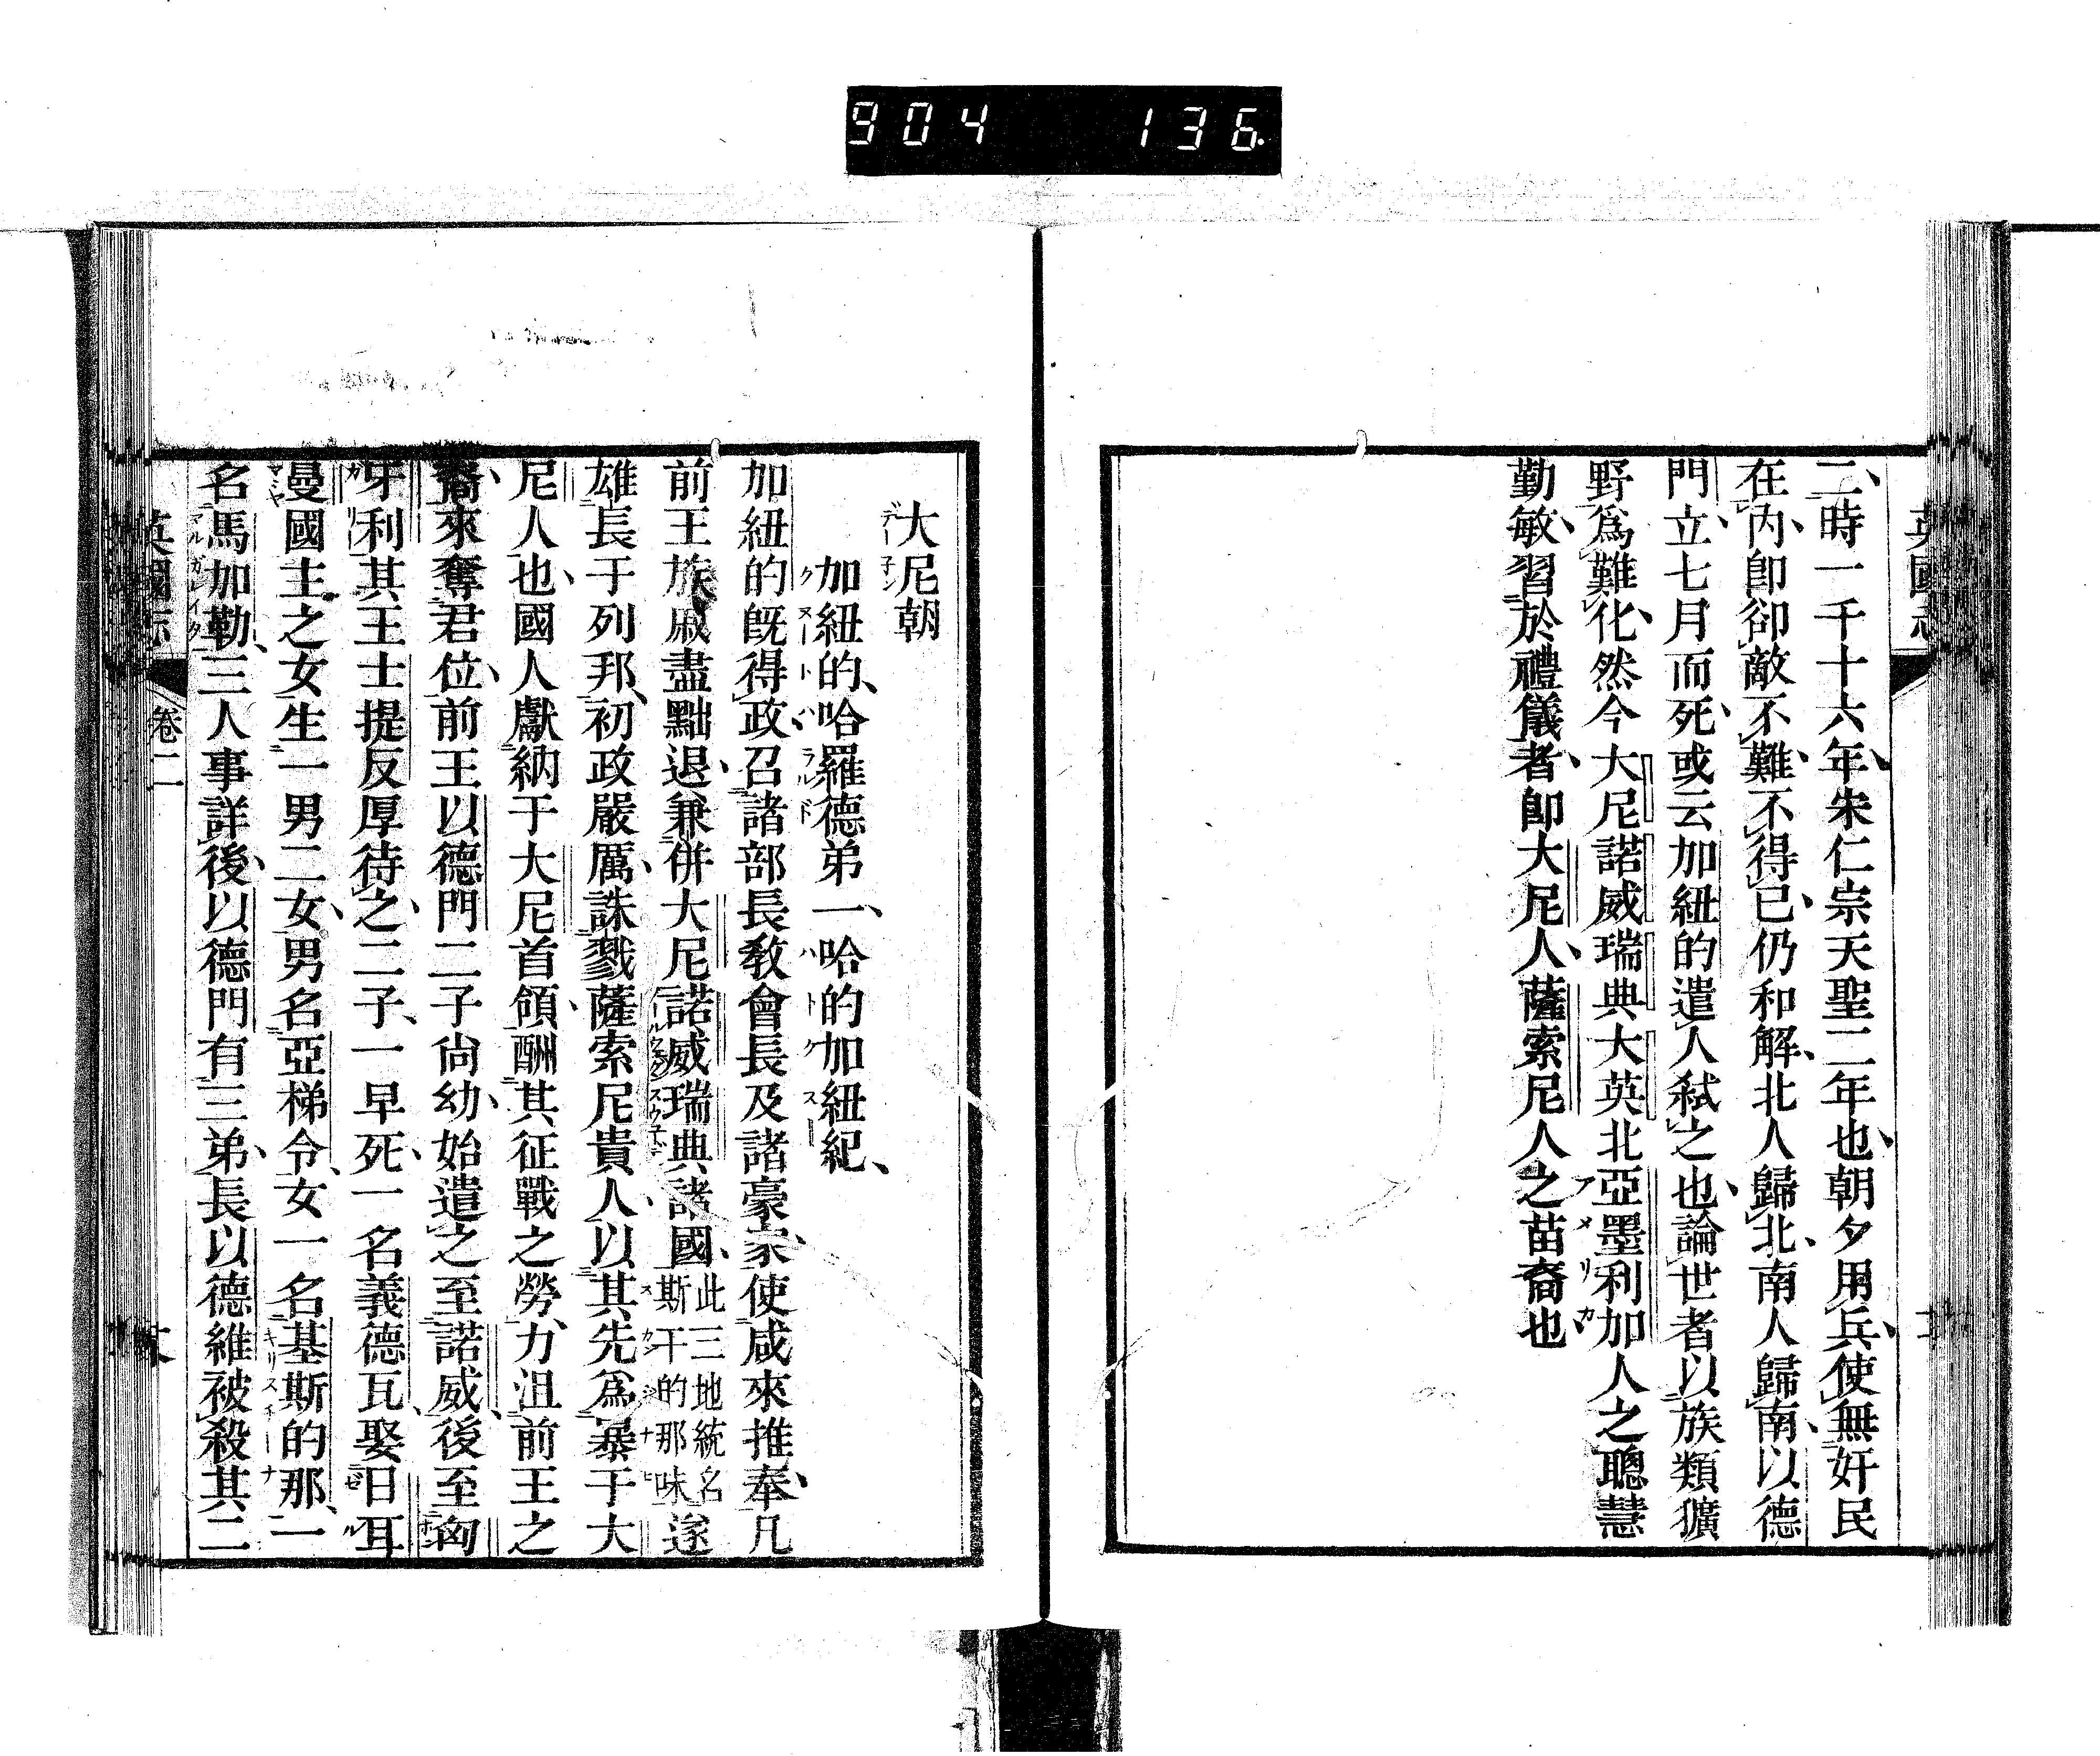 904 136
英國志
二時一千十六年朱仁宗天聖二年也朝夕用兵使無奸民
在內卽郤敵不難不得已仍和解北人歸北南人歸南以德
門立七月而死或云加紐的遣人弒之也論世者以族類獷
野爲難化然今大尼諾威瑞典大英北亞墨利加人之聰慧
アメリカ
勤敏習於禮儀者卽大尼人薩索尼人之苗裔也
大尼朝
デー子ン
加紐的哈羅德弟一哈的加紐紀
クヌートハラルド ハトクスー
加紐的旣得政召諸部長教會長及諸豪家使咸來推奉凡
前王族戚盡黜退兼併大尼諾威瑞典諸國此三地統名斯干的那味遂
雄長于列邦初政嚴厲誅戮薩索尼貴人以其先爲暴于大
尼人也國人獻納于大尼首領酬其征戰之勞力沮前王之
裔來奪君位前王以德門二子尙幼始遣之至諾威後至匈
牙利其王士提反厚待之二子一早死一名義德瓦娶日耳
曼國主之女生一男二女男名亞梯令女一名基斯的那一
キリスチーナ
名馬加勒三人事詳後以德門有三弟長以德維被殺其二
マルガルイタ
英國志 卷二